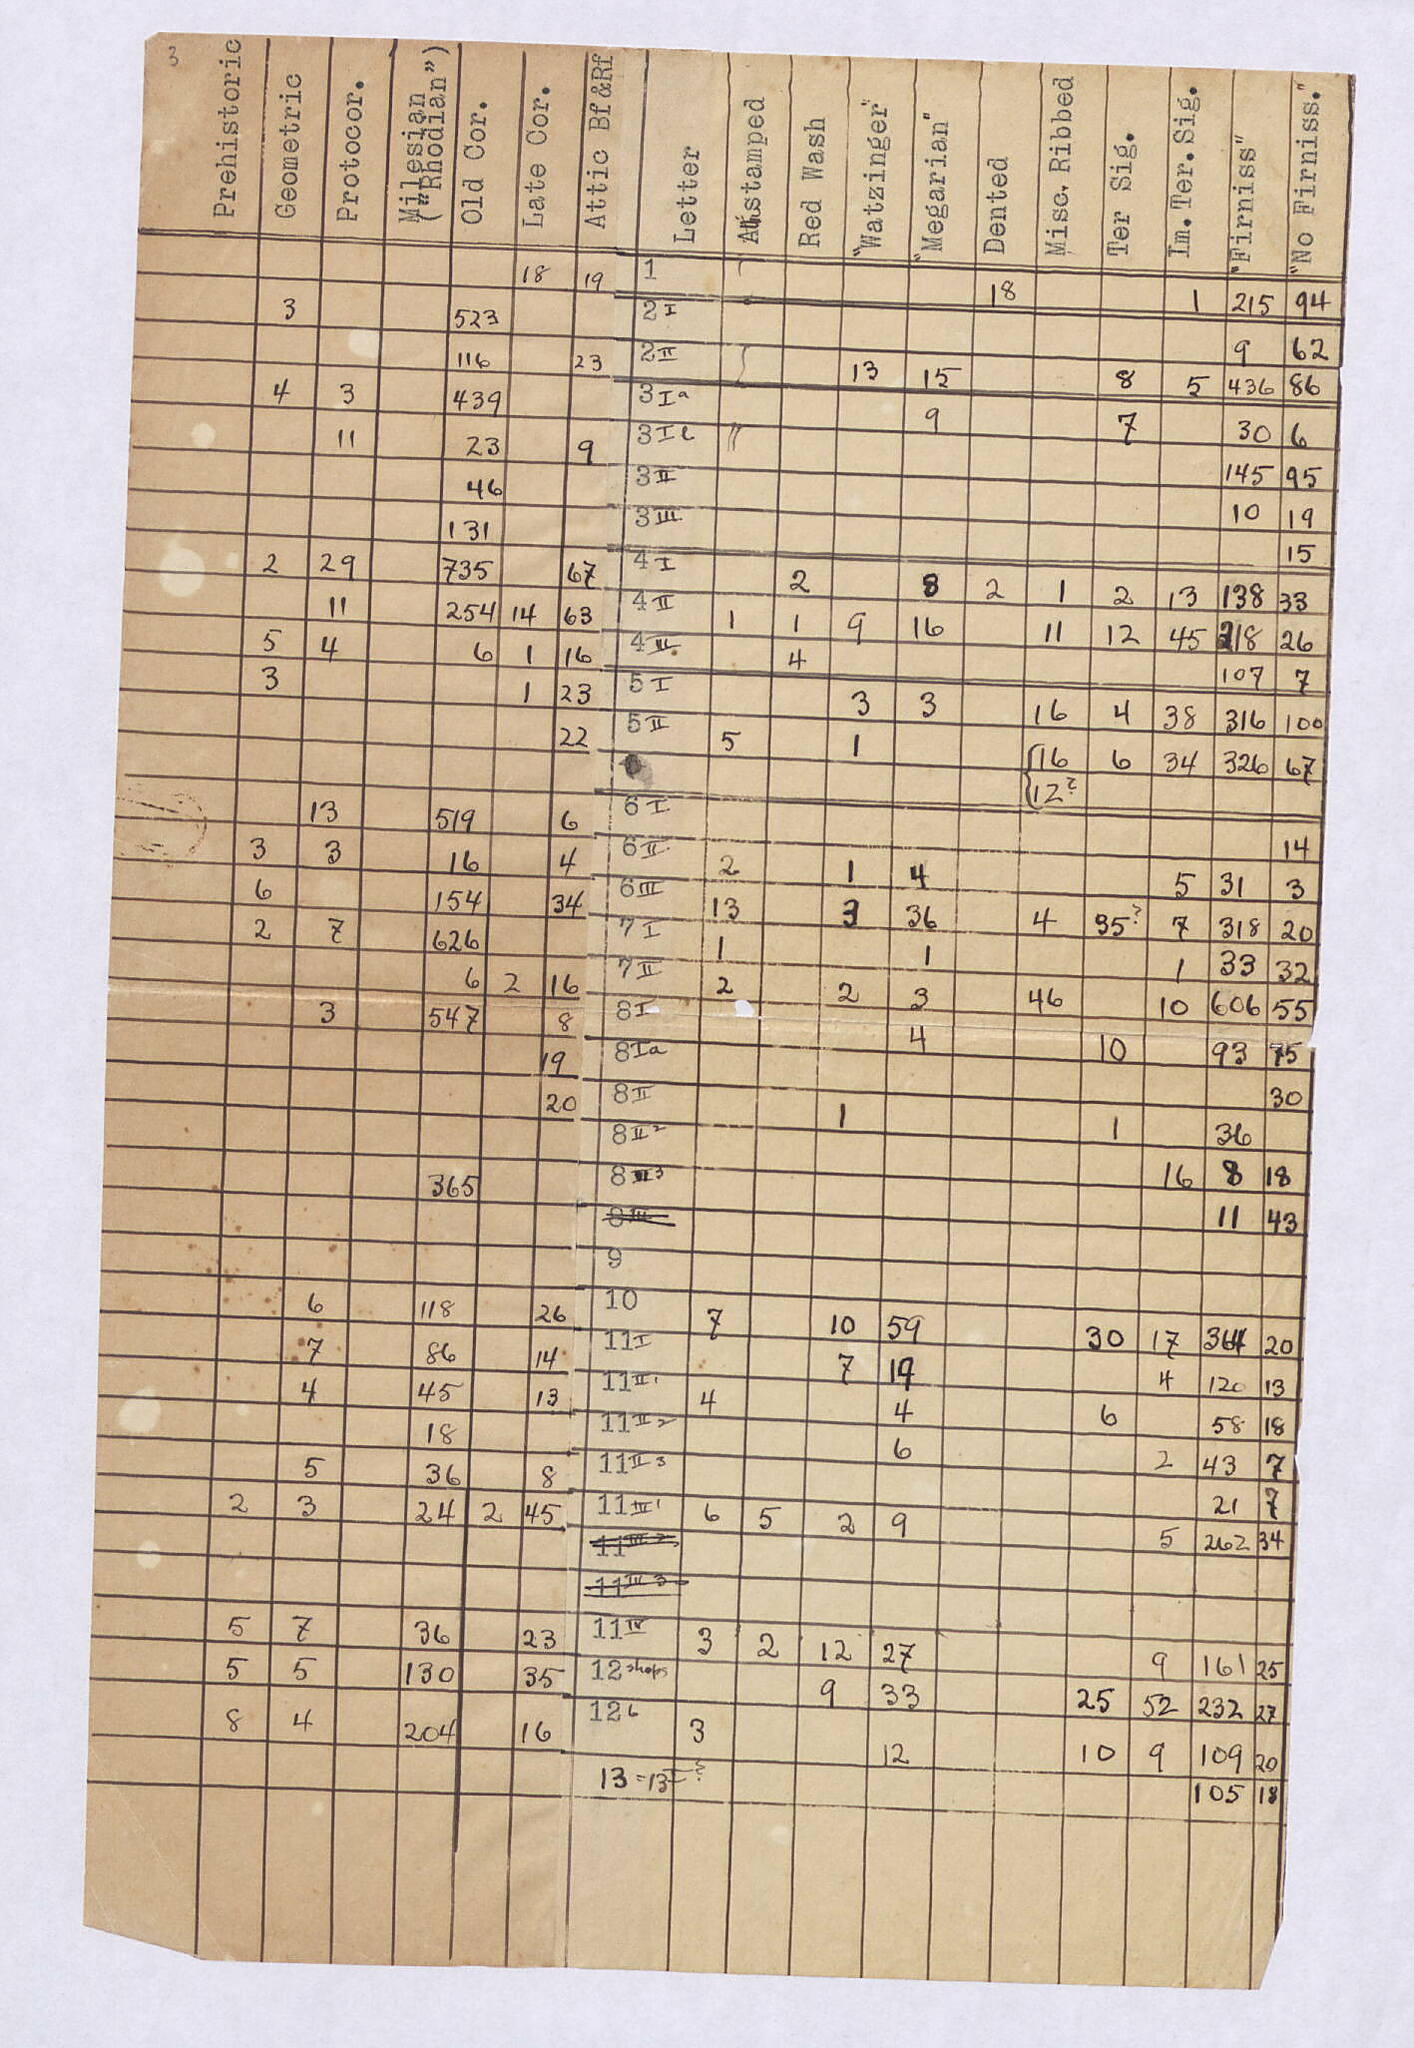 3
Prehistoric Geometric Protocor. Milesian ("Rhodian") Old Cor. Late Cor. Attic Bf&Rf Letter stamped Red Wash "Watzinger" "Megarian" Dented Misc. Ribbed Ter Sig. Im. Ter. Sig. "Firniss" "No Firniss."
18 19 1 18 1 215 94
3 523 2I 9 62
116 23 2II 13 15 8 5 436 86
4 3 439 3Ia 9 7 30 6
11 23 9 3I 145 95
46 3II 10 19
131 3III 15
2 29 735 67 4I 2 8 2 1 2 13 138 33
11 254 14 63 4II 1 1 9 16 11 12 45 218 26
5 4 6 1 16 4III 4 107 7
3 1 23 5I 3 3 16 4 38 316 100
22 5II 5 1 16 6 34 326 67
12?
13 519 6 6I 14
3 3 16 4 6II 2 1 4 5 31 3
6 154 34 6III 13 3 36 4 35? 7 318 20
2 7 626 7I 1 1 1 33 32
6 2 16 7II 2 2 3 46 10 606 55
3 547 8 8I 4 10 93 75
19 8Ia 30
20 8II 1 1 36
8II2 16 8 18
365 8II3 11 43
8III
9
6 118 26 10 7 10 59 30 17 364 20
7 86 14 11I 7 19 4 120 13
4 45 13 11II1 4 4 6 58 18
18 11II2 6 2 43 7
5 36 8 11II3 21 7
2 3 24 2 45 11III1 6 5 2 9 5 262 34
11III2
11III3
5 7 36 23 11IV 3 2 12 27 9 161 25
5 5 130 35 12 shops 9 33 25 52 232 27
8 4 204 16 12b 3 12 10 9 109 20
13 = 13I? 105 18